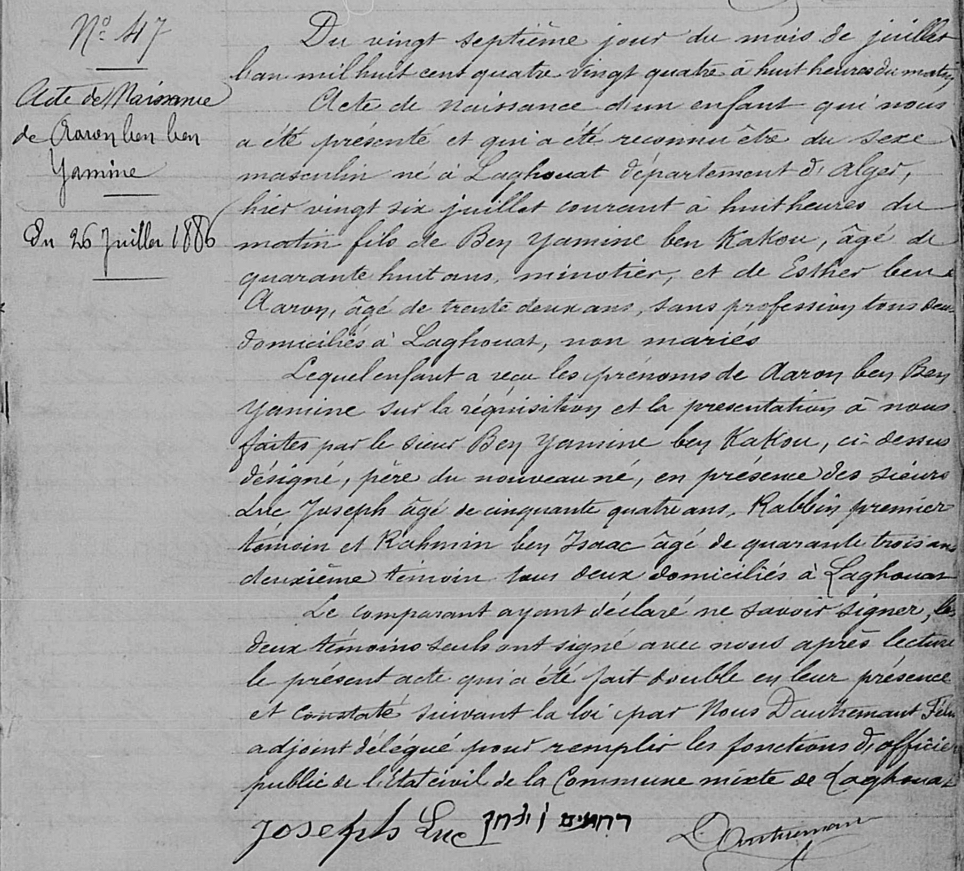 N.o 47
Acte de Naissance
de Aaron ben ben
Yamine
Du 26 Juillet 1886
Du vingt septième jour du mois de juillet
l'an mil huit cent quatre vingt quatre à huit heures du matin,
Acte de naissance d'un enfant qui nous
a été présenté et qui a été reconnu être du sexe
masculin né à Laghouat département d'Alger,
hier vingt six juillet courant à huit heures du
matin fils de Ben Yamine ben Kakou, âgé de
quarante huit ans, minotier, et de Esther ben
Aaron, âgé de trente deux ans, sans profession tous deux
domiciliés à Laghouat, non mariés
Lequel enfant a reçu les prénoms de Aaron ben Ben
Yamine sur la réquisition et la presentation à nous
faites par le sieur Ben Yamine ben Kakou, ci-dessus
désigné, père du nouveau né, en présence des sieurs
Luc Joseph âgé de cinquante quatre ans, Rabbin premier
témoin et Rahmin ben Isaac âgé de quarante trois ans
deuxième témoin tous deux domiciliés à Laghouat
Le comparant ayant déclaré ne savoir signer, les
deux témoins seuls ont signé avec nous après lecture
le présent acte qui a été fait double en leur présence
et constaté suivant la loi par Nous Dautremant Félix
adjoint délégué pour remplir les fonctions d'officier
public de l'Etat civil de la Commune mixte de Laghouat
Joseph Luc רחמים ן יצחק Dautremant